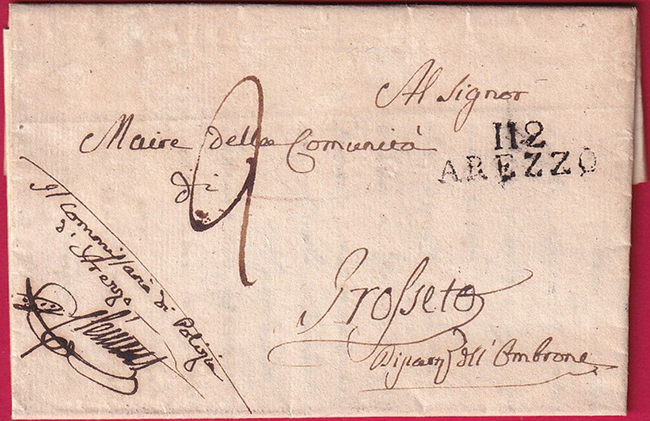 Al Signor
Maire della Comunità
di
Grosseto
Dipart dell' Ombrone
112
AREZZO
Il Commissario di Polizia
d'Arezzo